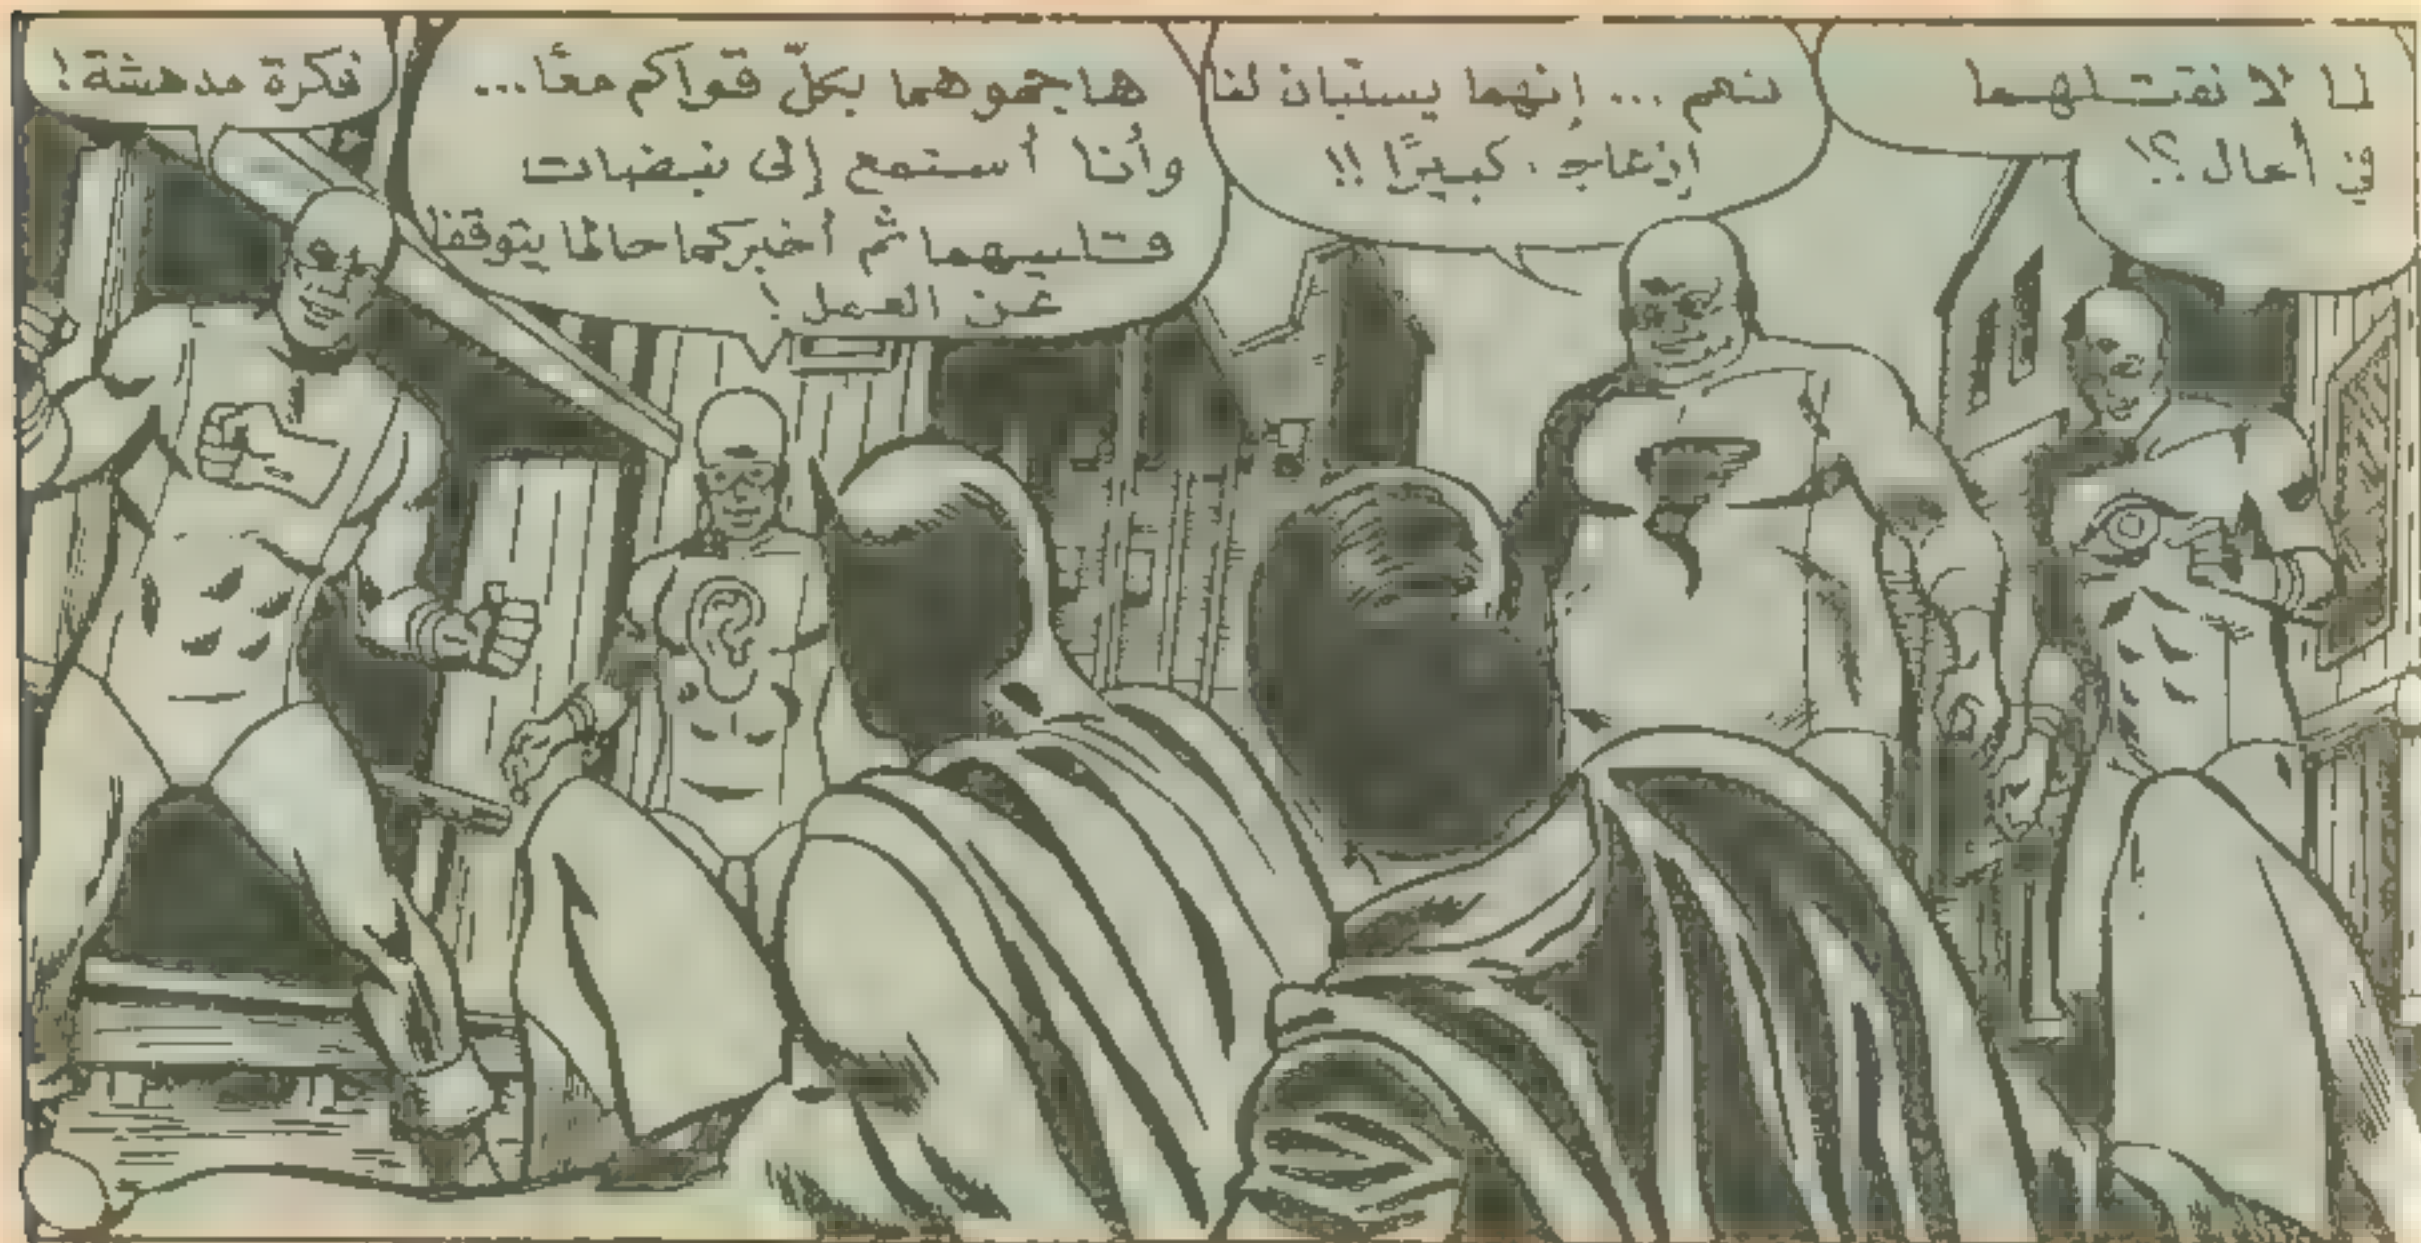 لما لا نقتلهما
في الحال ؟!
نعم ... إنهما يسببان لنا
إزعاجًا كبيرًا !!
هاجموهما بكلّ قواكم معًا...
وأنا أستمع إلى نبضات
قلبيهما ثم أخبركما حالما يتوقفا
عن العمل !
فكرة مدهشة !